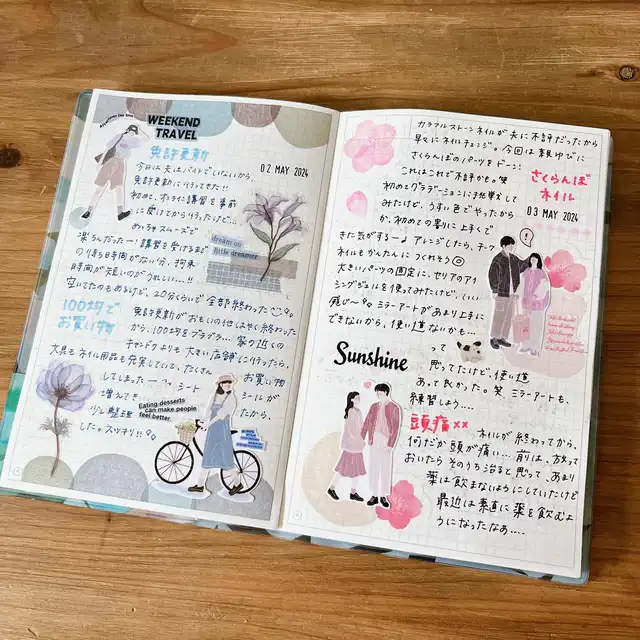 WEEKEND
TRAVEL
免許更新
02 MAY 2024
今日は夫はバイトでいないから、
免許更新に行ってきた!!
初めて、オンライン講習を事前
に受けてから行ったけど…
めっちゃスムーズで
楽ちんだったー!講習を受けるまで
の待ち時間がない分、拘束
時間が短いのがうれしい…!!
空いてたのもあるけど、20分くらいで全部終わった
dream on
little dreamer
100均で
お買い物
免許更新がおもいの他はやく終わった
から、100均をブラブラ… 家の近くの
キャンドゥよりも大きい店舗に行ったら、
文具もネイル用品も充実していて、たくさん
お買い物
してしまった シート
シールが
増えてき
たから、
少し整理
した。スッキリ!!
Eating desserts
can make people
feel better.
カラフルストーンネイルが夫に不評だったから
早々にネイルチェンジ。今回は親ゆびに
さくらんぼのパーツをドーン!
これはこれで不評かも。笑
さくらんぼ
ネイル
03 MAY 2024
初めてグラデーションにも挑戦して
みたけど、うすい色でやったから
か、初めての割に上手くで
きた気がするー♪アレンジしたら、チーク
ネイルもかんたんにつくれそう◎
大きいパーツの固定に、セリアのアイ
シングジェルを使ってみたけど、いい
感じ〜 ミラーアートがあまり上手に
できないから、使い道ないかも…
って
思ってたけど、使い道
あって良かった。笑 ミラーアートも、
練習しよう…
Sunshine
頭痛××
ネイルが終わってから、
何だか頭が痛い… 前は、放って
おいたらそのうち治ると思って、あまり
薬は飲まないようにしていたけど
最近は素直に薬を飲むよ
うになったなあ…